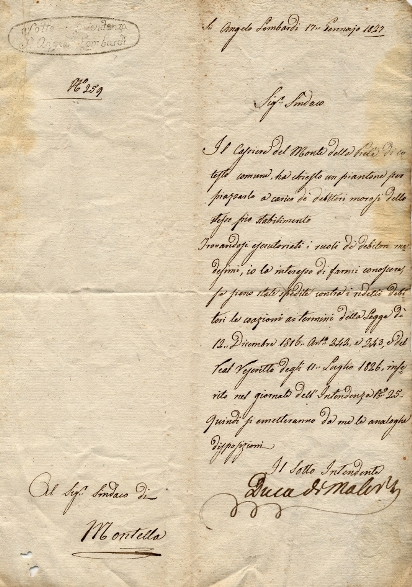 Sotto Intendenza
S. Angelo Lombardi
N.º 259
S. Angelo Lombardi 17 Gennajo 1827
Sig.r Sindaco
Il Cassiere del Monte della Pietà di co
testo comune, ha chiesto un piantone per
piazzarlo a carico de' debitori morosi dello
stesso pio stabilimento
Trovandosi esecutoriati i ruoli de' debitori me
desimi, io la interesso di farmi conoscere,
se sieno state spedite contra i debi
tori le coazioni a' termini della Legge de'
12 Dicembre 1816. Art.i 242, e 243, e del
Real Rescritto degli 11 Luglio 1826, inse
rito nel giornale dell'Intendenza N.º 25.
Quindi si emetteranno da me le analoghe
disposizioni
Il Sotto Intendente
Duca di
Al Sig.r Sindaco di
Montella